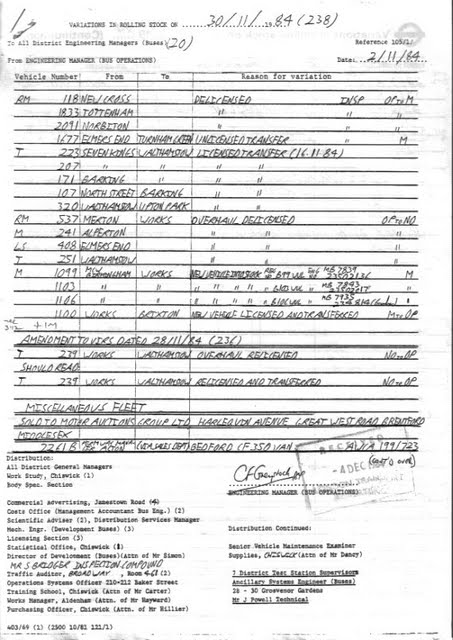 VARIATIONS IN ROLLING STOCK ON 30/11/1984 (238)
To All District Engineering Managers (Buses) (20) Reference 105/1/
From ENGINEERING MANAGER (BUS OPERATIONS) Date: 2/11/84
Vehicle Number From To Reason for variation
RM 118 NEW CROSS DELICENSED INSP OP to M
1833 TOTTENHAM " " "
2091 NORBITON " " "
1677 ELMERS END TURNHAM GREEN UNLICENSED TRANSFER M
T 223 SEVEN KINGS WALTHAMSTOW LICENSED TRANSFER (16.11.84)
207 " " " "
171 BARKING " " "
107 NORTH STREET BARKING " "
320 WALTHAMSTOW UPTON PARK " "
RM 537 MERTON WORKS OVERHAUL DELICENSED OP to NO
M 241 ALPERTON " " "
LS 408 ELMERS END " " "
T 251 WALTHAMSTOW " " "
M 1099 MCW WORKS NEW VEHICLE INTO STOCK M
1103 " "
1106 " "
1100 WORKS BRIXTON NEW VEHICLE LICENSED AND TRANSFERRED M to OP
+1M
AMENDMENT TO VIRS DATED 28/11/84 (236)
T 239 WORKS WALTHAMSTOW OVERHAUL RELICENSED NO to OP
SHOULD READ
T 239 WORKS WALTHAMSTOW RELICENSED AND TRANSFERRED NO to OP
MISCELLANEOUS FLEET
SOLD TO MOTOR AUCTIONS GROUP LTD, HARLEQUIN AVENUE, GREAT WEST ROAD, BRENTFORD
MIDDLESEX
2261B ACTON (VIA SALES DEPT) BEDFORD CF 350 VAN 199/723
Distribution: -4 DEC
All District General Managers
Work Study, Chiswick (1)
Body Spec. Section ENGINEERING MANAGER (BUS OPERATIONS)
Commercial Advertising, Jamestown Road
Costs Office (Management Accountant Bus Eng.) (2)
Scientific Adviser (2), Distribution Services Manager
Mech. Engr. (Development Buses) (3) Distribution Continued:
Licensing Section (3)
Statistical Office, Chiswick Senior Vehicle Maintenance Examiner
Director of Development (Buses)(Attn of Mr Simon) Supplies, CHISWICK (Attn of Mr Dancy)
MR S BRIDGER INSPECTION COMPOUND
Traffic Auditor, BROADWAY, Room 7 District Test Station Supervisors
Operations Systems Officer 210-212 Baker Street Ancillary Systems Engineer (Buses)
Training School, Chiswick (Attn of Mr Carter) 28 - 30 Grosvenor Gardens
Works Manager, Aldenham (Attn of Mr Hayward) Mr J Powell Technical
Purchasing Officer, Chiswick (Attn of Mr Hillier)
403/69 (1) (2500 10/82 121/1)